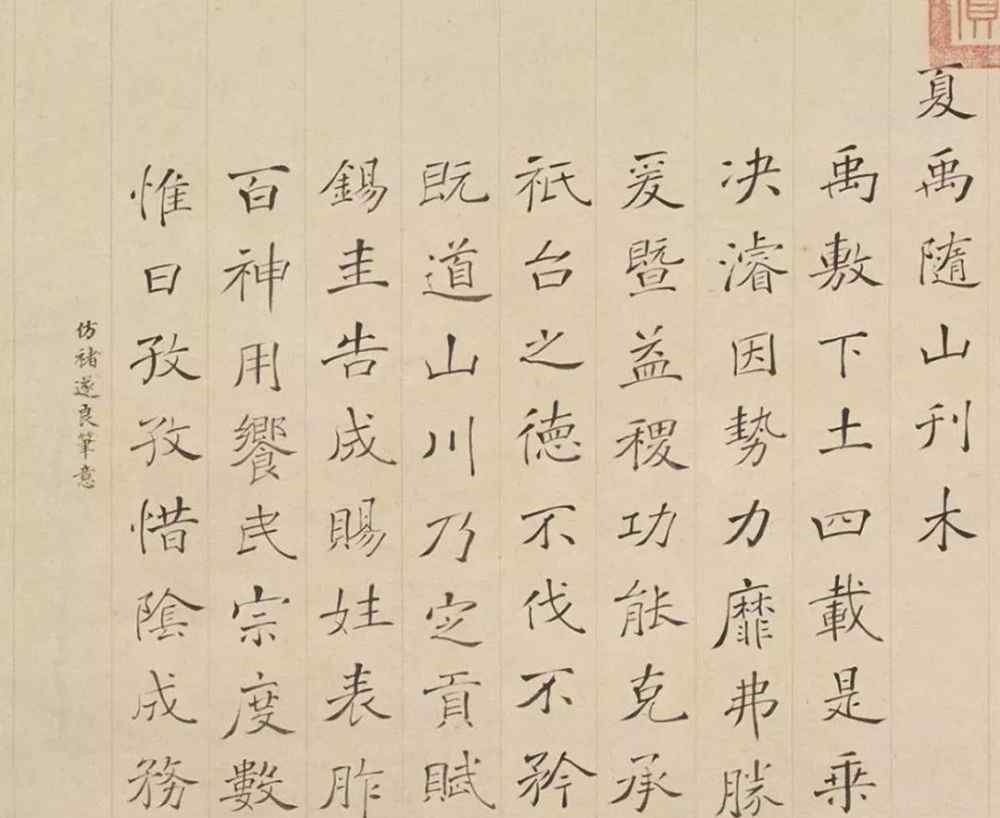 夏禹隨山刋木
禹敷下土四載是乗
决濬因勢力靡弗勝
爰暨益稷功能克承
祇台之德不伐不矜
既道山川乃定貢賦
錫圭告成賜姓表胙
百神用饗民宗度數
惟日孜孜惜陰成務
仿褚遂良筆意